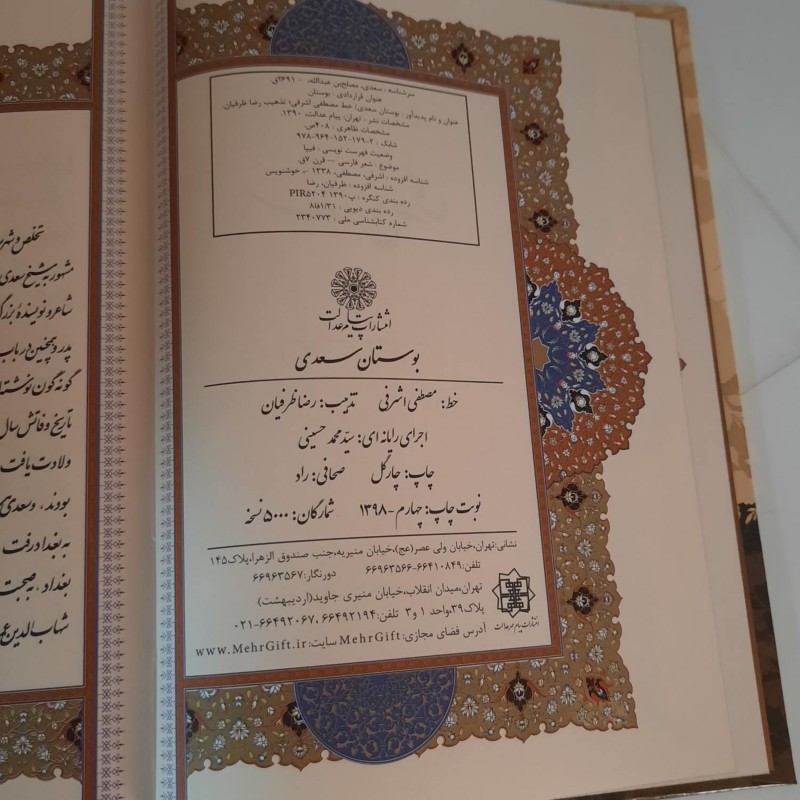 سرشناسه : سعدی، مصلح‌بن عبدالله، - ۶۹۱؟ق.
عنوان قراردادی : بوستان
عنوان و نام پدیدآور : بوستان سعدی/ خط مصطفی اشرفی؛ تذهیب رضا ظرفیان.
مشخصات نشر : تهران: پیام عدالت، ۱۳۹۰.
مشخصات ظاهری : ۴۰۸ص.
شابک : ۲-۱۷۹-۱۵۲-۹۶۴-۹۷۸
وضعیت فهرست نویسی : فیپا
موضوع : شعر فارسی -- قرن ۷ق.
شناسه افزوده : اشرفی، مصطفی، ۱۳۳۸ -، خوشنویس
شناسه افزوده : ظرفیان، رضا
رده بندی کنگره : پ۱۳۹۰ PIR۵۲۰۴
رده بندی دیویی : ۸فا۱/۳۱
شماره کتابشناسی ملی : ۲۳۴۰۷۷۳
انتشارات پیام عدالت
بوستان سعدی
خط: مصطفی اشرفی تذهیب: رضا ظرفیان
اجرای رایانه ای: سیّد محمد حسینی
چاپ: چارگل صحافی: راد
نوبت چاپ: چهارم - ۱۳۹۸ شمارگان: ۵۰۰۰ نسخه
نشانی: تهران، خیابان ولی عصر(عج)، خیابان منیریه، جنب صندوق الزهرا، پلاک ۱۴۵
تلفن: ۶۶۴۱۰۸۴۹-۶۶۹۶۳۵۶۶ دورنگار: ۶۶۹۶۳۵۶۷
تهران، میدان انقلاب، خیابان منیری جاوید(اردیبهشت)
پلاک ۳۹، واحد ۱ و ۳ تلفن: ۶۶۴۹۲۱۹۴، ۶۶۴۹۲۰۶۷-۰۲۱
آدرس فضای مجازی: MehrGift سایت: www.MehrGift.ir
انتشارات پیام مهر عدالت
تخلص و شهر
مشهور به شیخ سعدی
شاعر و نویسندهٔ بزرگ
پدر و همچنین در باب
گونه گون نوشته
تاریخ وفاتش سال
ولادت یافت
بودند. و سعدی هم
به بغداد رفت
بغداد، به صحبت
شهاب الدین